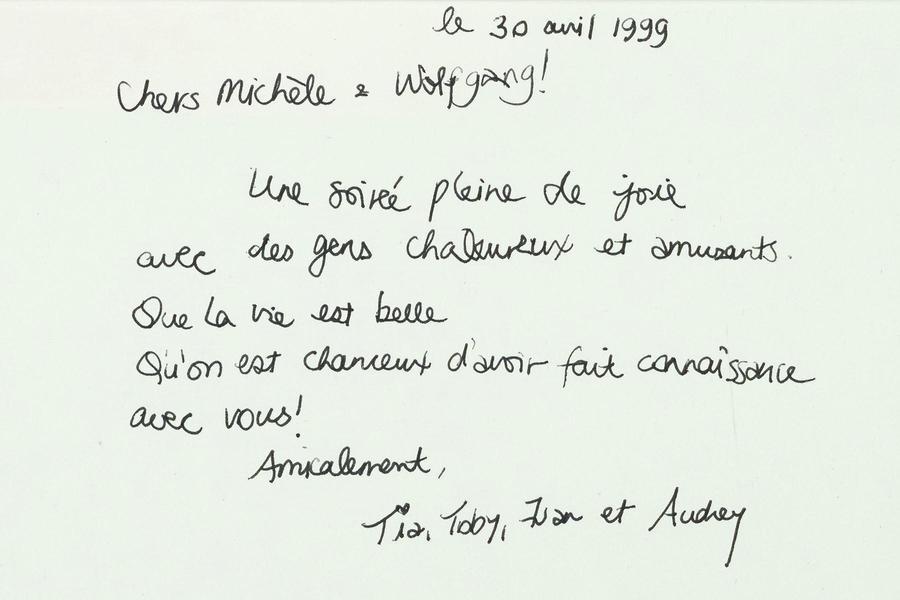 le 30 avril 1999
Chers Michèle & Wolfgang!
Une soireé pleine de joie
avec des gens chaleureux et amusants.
Que la vie est belle
Qu'on est chanceux d'avoir fait connaîssance
avec vous!
Amicalement,
Tia, Toby, Ivan et Audrey